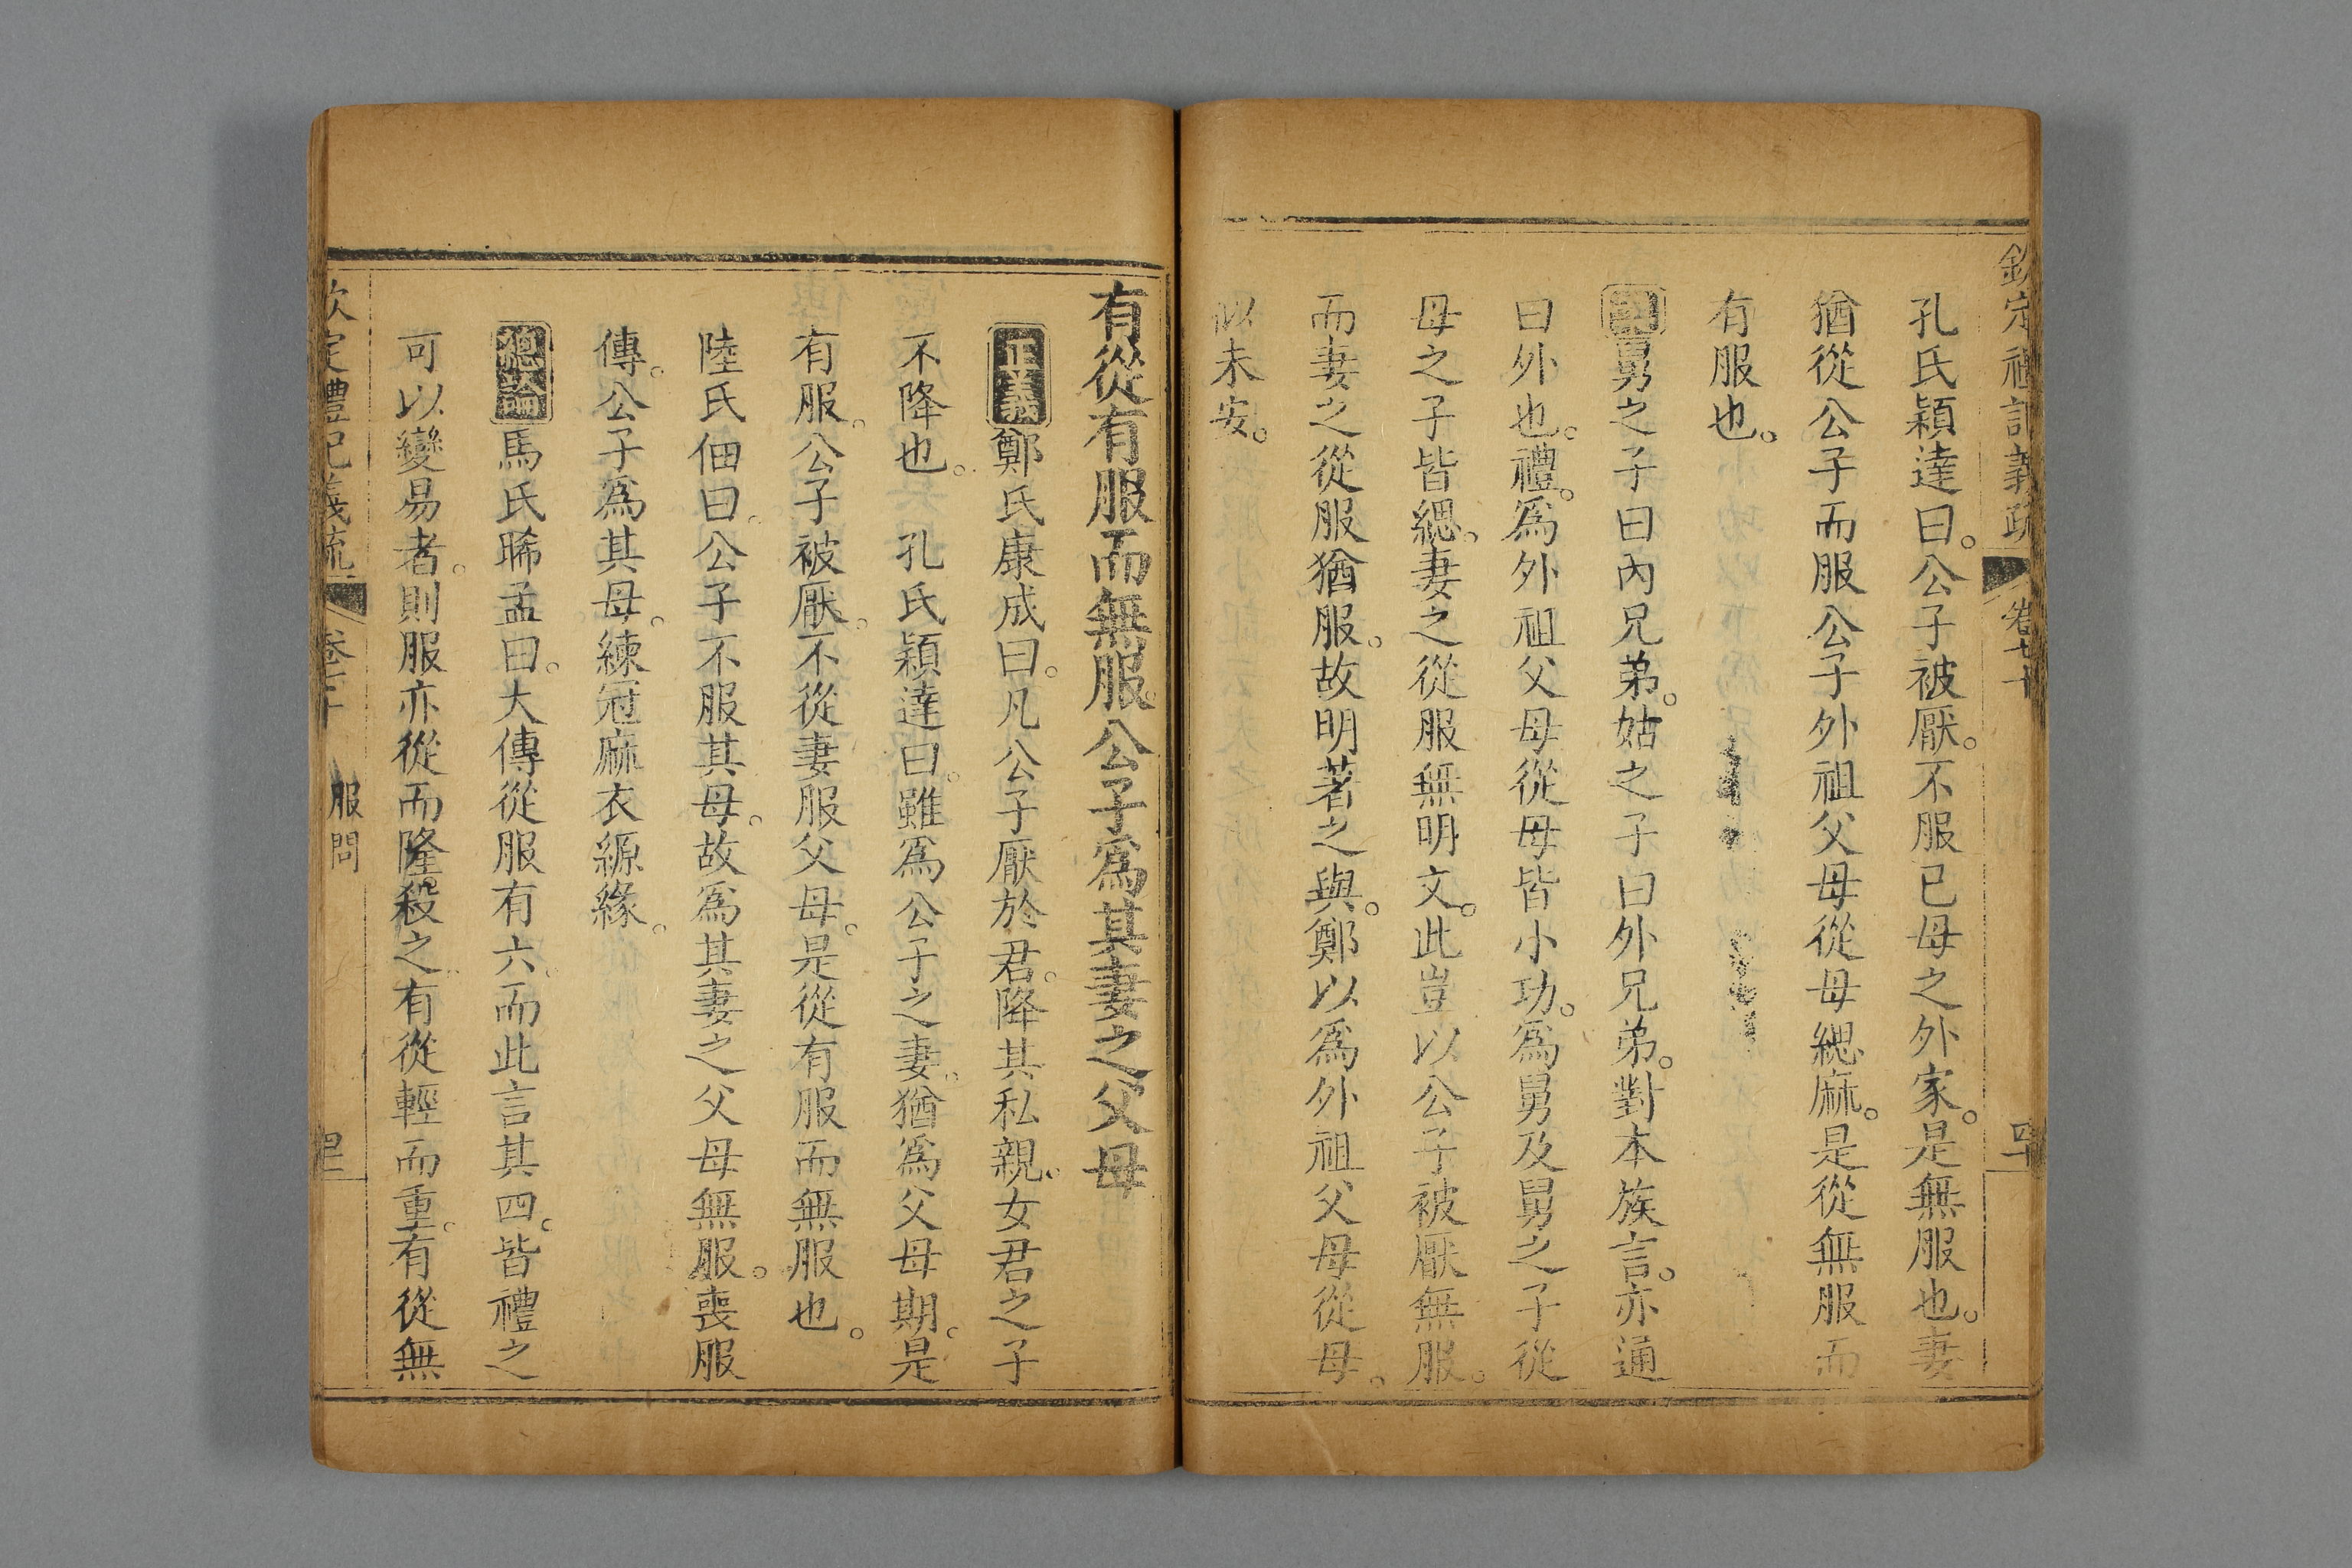 欽定禮記義疏 卷七十 四十
孔氏穎達曰。公子被厭。不服已母之外家。是無服也。妻
猶從公子而服公子外祖父母從母緦麻。是從無服而
有服也。
舅之子曰內兄弟。姑之子曰外兄弟。對本族言。亦通
曰外也。禮。爲外祖父母從母皆小功。爲舅及舅之子從
母之子皆緦。妻之從服無明文。此豈以公子被厭無服。
而妻之從服猶服。故明著之與。鄭以爲外祖父母從母。
似未安。
有從有服而無服。公子爲其妻之父母
正義鄭氏康成曰。凡公子厭於君。降其私親。女君之子
不降也。 孔氏穎達曰。雖爲公子之妻。猶爲父母期。是
有服。公子被厭。不從妻服父母。是從有服而無服也。
陸氏佃曰。公子不服其母。故爲其妻之父母無服。喪服
傳。公子爲其母。練冠麻衣縓緣。
總論馬氏晞孟曰。大傳從服有六。而此言其四。皆禮之
可以變易者。則服亦從而隆殺之。有從輕而重。有從無
欽定禮記義疏 卷七十 服問